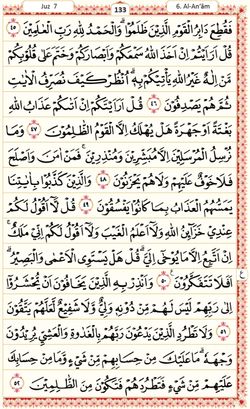 Juz 7
133
6. Al-An'âm
فَقُطِعَ دَابِرُ الْقَوْمِ الَّذِينَ ظَلَمُوا۟ ۚ وَالْحَمْدُ لِلَّهِ رَبِّ الْعَٰلَمِينَ ٤٥
قُلْ أَرَءَيْتُمْ إِنْ أَخَذَ اللَّهُ سَمْعَكُمْ وَأَبْصَٰرَكُمْ وَخَتَمَ عَلَىٰ قُلُوبِكُم
مَّنْ إِلَٰهٌ غَيْرُ اللَّهِ يَأْتِيكُم بِهِ ۗ انظُرْ كَيْفَ نُصَرِّفُ الْءَايَٰتِ
ثُمَّ هُمْ يَصْدِفُونَ ٤٦ قُلْ أَرَءَيْتَكُمْ إِنْ أَتَىٰكُمْ عَذَابُ اللَّهِ
بَغْتَةً أَوْ جَهْرَةً هَلْ يُهْلَكُ إِلَّا الْقَوْمُ الظَّٰلِمُونَ ٤٧ وَمَا
نُرْسِلُ الْمُرْسَلِينَ إِلَّا مُبَشِّرِينَ وَمُنذِرِينَ ۖ فَمَنْ ءَامَنَ وَأَصْلَحَ
فَلَا خَوْفٌ عَلَيْهِمْ وَلَا هُمْ يَحْزَنُونَ ٤٨ وَالَّذِينَ كَذَّبُوا۟ بِـَٔايَٰتِنَا
يَمَسُّهُمُ الْعَذَابُ بِمَا كَانُوا۟ يَفْسُقُونَ ٤٩ قُل لَّا أَقُولُ لَكُمْ
عِندِى خَزَائِنُ اللَّهِ وَلَا أَعْلَمُ الْغَيْبَ وَلَا أَقُولُ لَكُمْ إِنِّى مَلَكٌ ۖ
إِنْ أَتَّبِعُ إِلَّا مَا يُوحَىٰ إِلَىَّ ۚ قُلْ هَلْ يَسْتَوِى الْأَعْمَىٰ وَالْبَصِيرُ ۚ
أَفَلَا تَتَفَكَّرُونَ ٥٠ وَأَنذِرْ بِهِ الَّذِينَ يَخَافُونَ أَن يُحْشَرُوا۟
إِلَىٰ رَبِّهِمْ ۙ لَيْسَ لَهُم مِّن دُونِهِ وَلِىٌّ وَلَا شَفِيعٌ لَّعَلَّهُمْ يَتَّقُونَ
٥١ وَلَا تَطْرُدِ الَّذِينَ يَدْعُونَ رَبَّهُم بِالْغَدَوٰةِ وَالْعَشِىِّ يُرِيدُونَ
وَجْهَهُ ۖ مَا عَلَيْكَ مِنْ حِسَابِهِم مِّن شَىْءٍ وَمَا مِنْ حِسَابِكَ
عَلَيْهِم مِّن شَىْءٍ فَتَطْرُدَهُمْ فَتَكُونَ مِنَ الظَّٰلِمِينَ ٥٢